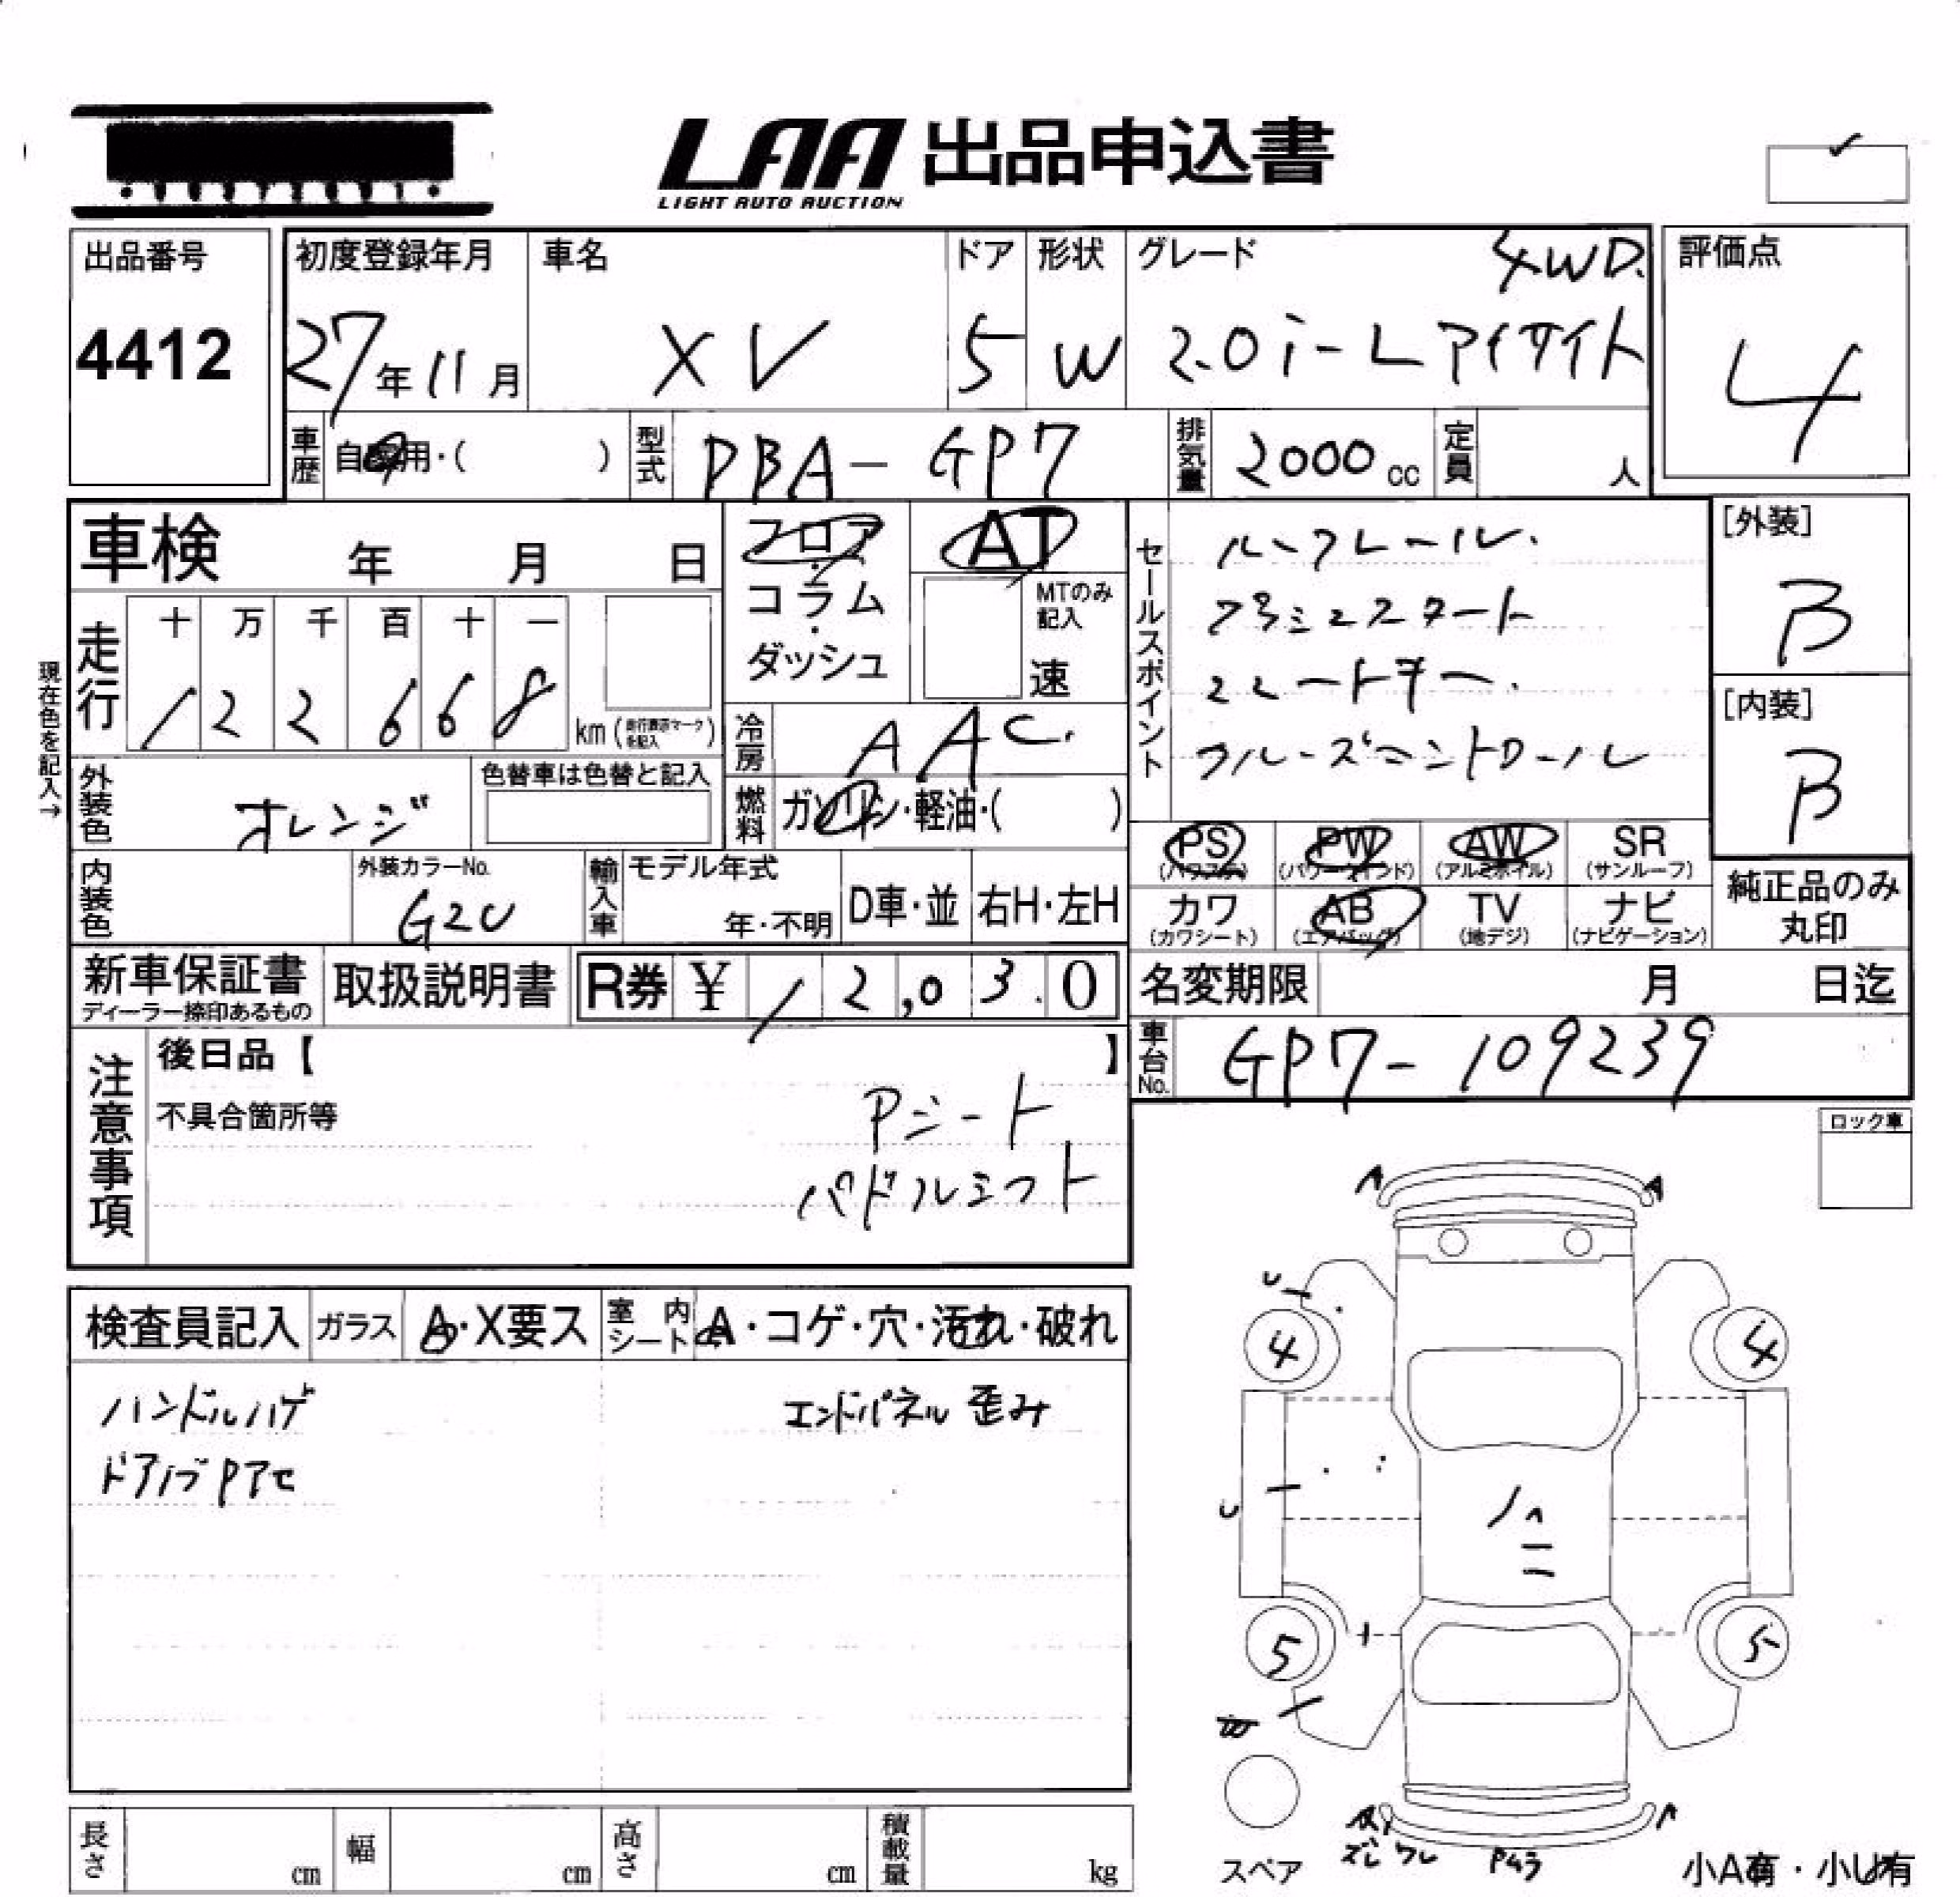 LAA 出品申込書
LIGHT AUTO AUCTION
出品番号
4412
初度登録年月
27年11月
車名
XV
ドア
5
形状
W
グレード
4WD.
2.0i-L アイサイト
評価点
4
車歴
自家用・( )
型式
DBA-GP7
排気量
2000cc
定員
人
車検 年 月 日
走行
十 万 千 百 十 一
1 2 2 6 6 8
km (走行表示マークを記入)
現在色を記入→
フロア・コラム・ダッシュ
AT
MTのみ記入
速
冷房
AAC.
燃料
ガソリン・軽油・( )
外装色
オレンジ
色替車は色替と記入
内装色
外装カラーNo.
G2U
輸入車
モデル年式
年・不明
D車・並
右H・左H
セールスポイント
ルーフレール.
プシュスタート
スマートキー.
クルーズコントロール
[外装]
B
[内装]
B
PS
(パワステ)
PW
(パワーウインド)
AW
(アルミホイル)
SR
(サンルーフ)
カワ
(カワシート)
AB
(エアバッグ)
TV
(地デジ)
ナビ
(ナビゲーション)
純正品のみ
丸印
新車保証書
ディーラー捺印あるもの
取扱説明書
R券 ¥12,030
名変期限 月 日迄
車台No.
GP7-109239
注意事項
後日品【 】
不具合箇所等
Pシート
パドルシフト
ロック車
検査員記入
ガラス
A・X要ス
室内シート
A・コゲ・穴・汚れ・破れ
ハンドルハゲ
ドアノブPアセ
エンドパネル 歪み
A A
U
4 4
U
ハ
5 5
A A
ズレ ワレ
Pムラ
スペア
小A有・小U有
長さ cm
幅 cm
高さ cm
積載量 kg